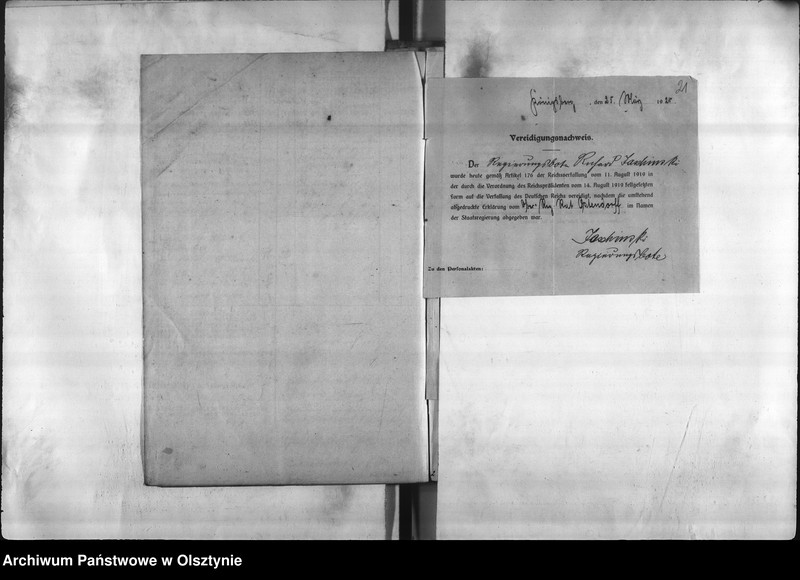 21
Königsberg, den 25. März 1920.
Vereidigungsnachweis.
Der Regierungsbote Richard Jaschinski
wurde heute gemäß Artikel 176 der Reichsverfassung vom 11. August 1919 in
der durch die Verordnung des Reichspräsidenten vom 14. August 1919 festgesetzten
Form auf die Verfassung des Deutschen Reichs vereidigt, nachdem die umstehend
abgedruckte Erklärung vom Reg Rat im Namen
der Staatsregierung abgegeben war.
Jaschinski
Regierungsbote
Zu den Personalakten:
Archiwum Państwowe w Olsztynie